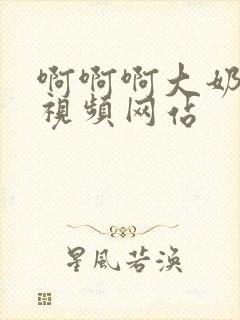 啊啊啊大奶
視頻网佔
星風若渙